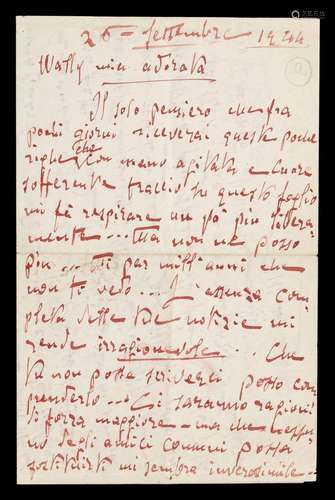 26 - Settembre 1924
Wally mia adorata
Il solo pensiero che fra
pochi giorni riceverai queste poche
righe che con mano agitata e cuore
sofferente traccio su questo foglio
mi fa respirare un po' più libera
mente --- Ma non ne posso
più --- Mi par mill'anni che
non ti vedo --- L'assenza com
pleta delle tue notizie mi
rende irragionevole --- Che
tu non possa scriverci posso com
prenderlo --- Ci saranno ragioni
di forza maggiore - ma che nessu
no degli amici comuni possa
sostituirti mi sembra inverosimile -